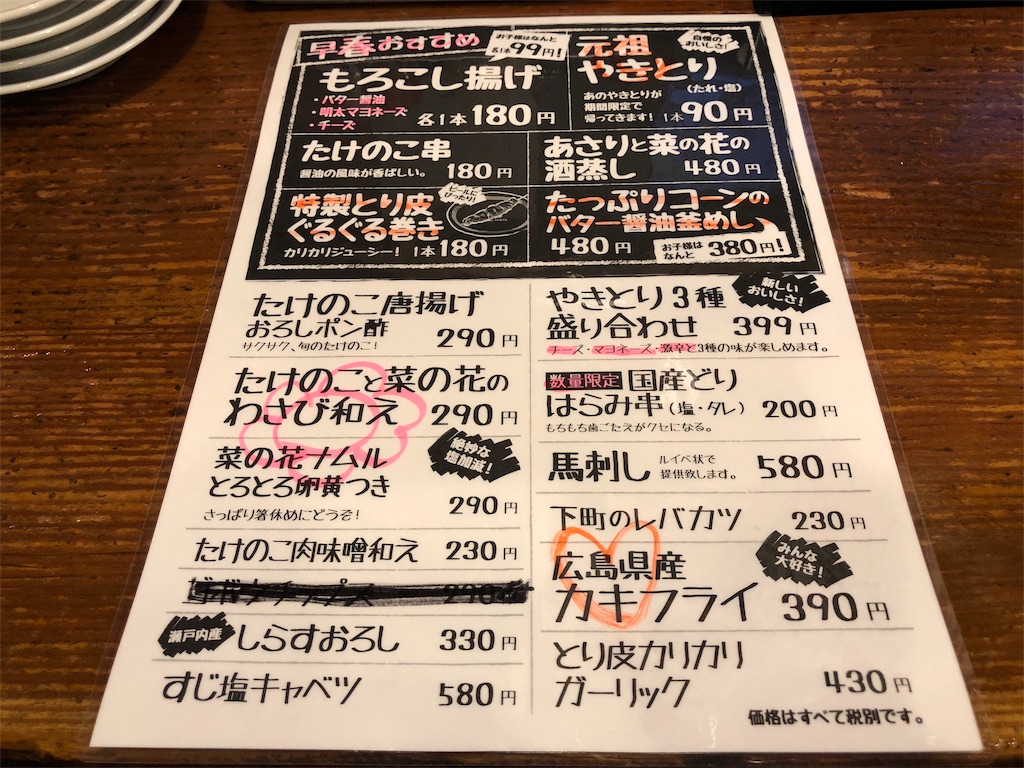 早春おすすめ
お子様はなんと
各1本99円!
もろこし揚げ
・バター醤油
・明太マヨネーズ
・チーズ
各1本180円
元祖
やきとり
自慢の
おいしさ!
(たれ・塩)
あのやきとりが
期間限定で
帰ってきます!
1本90円
たけのこ串
醤油の風味が香ばしい。
180円
あさりと菜の花の
酒蒸し 480円
特製とり皮
ぐるぐる巻き
ビールに
ぴったり!
カリカリジューシー! 1本180円
たっぷりコーンの
バター醤油釜めし
480円
お子様は
なんと 380円!
たけのこ唐揚げ
おろしポン酢
サクサク、旬のたけのこ!
290円
たけのこと菜の花の
わさび和え 290円
菜の花ナムル
とろとろ卵黄つき
絶妙な
塩加減!
さっぱり箸休めにどうぞ!
290円
たけのこ肉味噌和え 230円
瀬戸内産
しらすおろし 330円
すじ塩キャベツ 580円
やきとり3種
盛り合わせ 399円
新しい
おいしさ!
チーズ・マヨネーズ・激辛と3種の味が楽しめます。
数量限定 国産どり
はらみ串(塩・タレ) 200円
もちもち歯ごたえがクセになる。
馬刺し
ルイベ状で
提供致します。
580円
下町のレバカツ 230円
広島県産
カキフライ 390円
みんな
大好き!
とり皮カリカリ
ガーリック 430円
価格はすべて税別です。